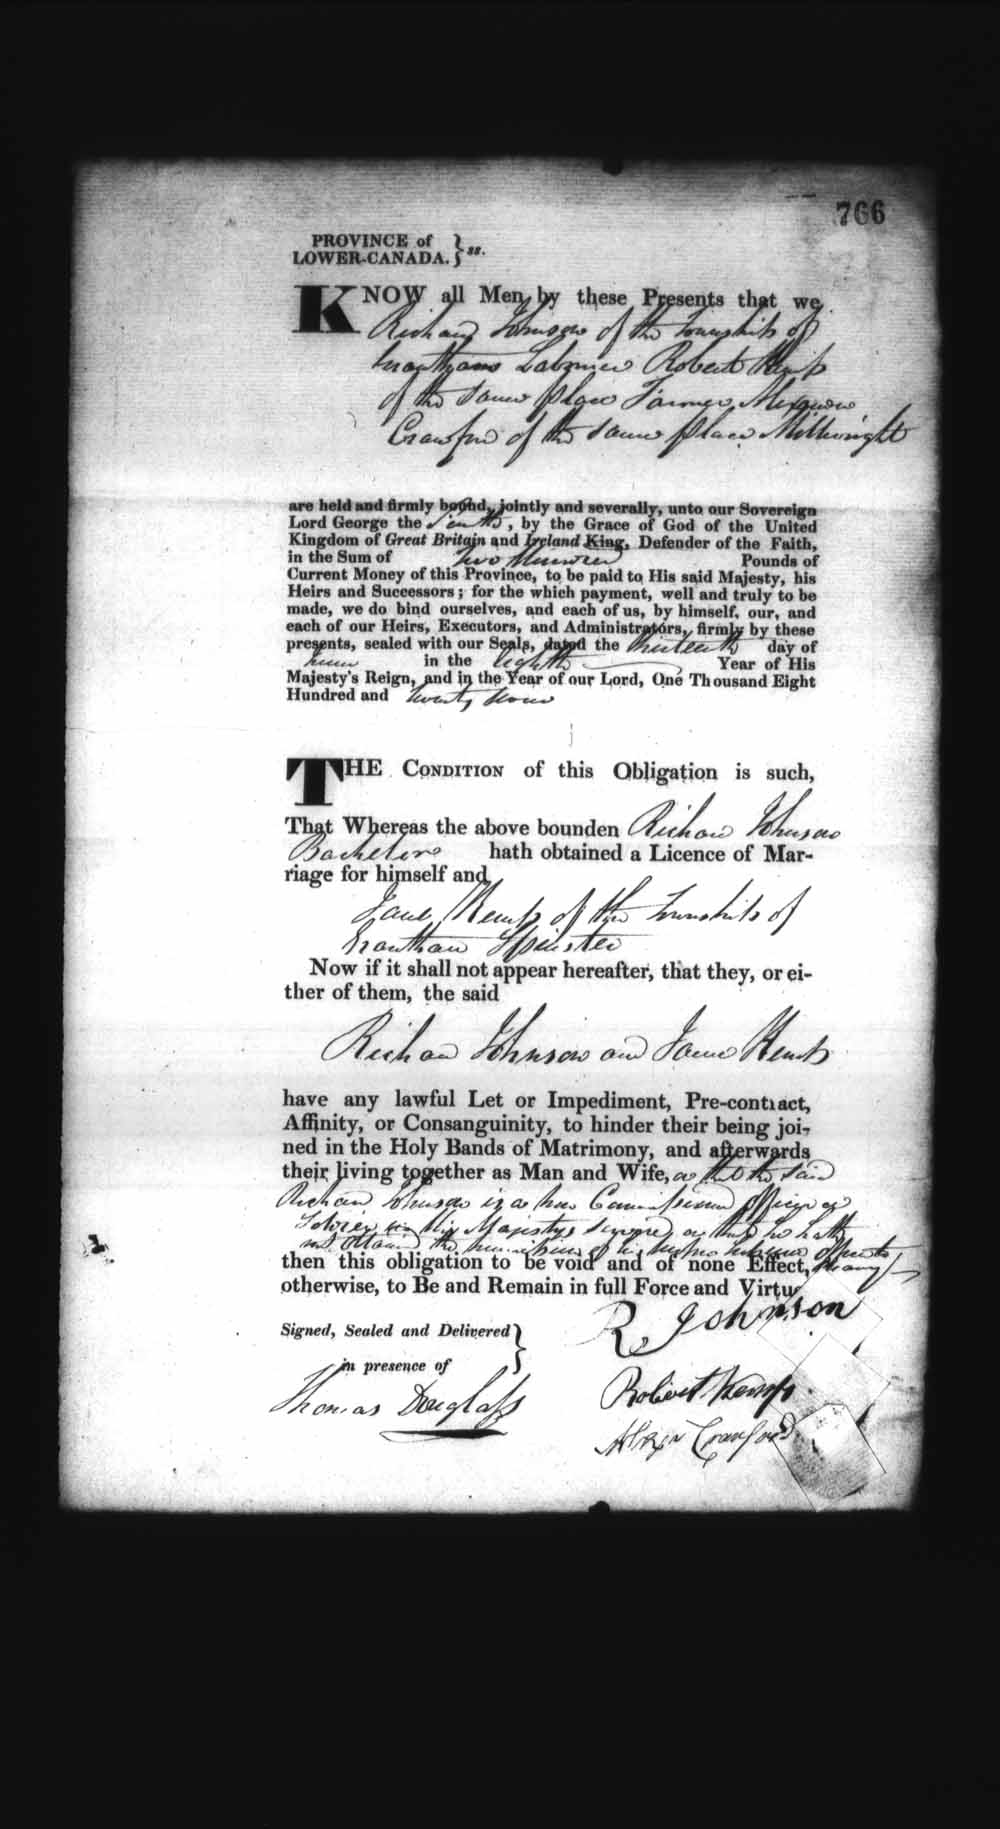 766
PROVINCE of
LOWER-CANADA. } ss.
KNOW all Men by these Presents that we
Richard Johnson of the Township of
Grantham Labourer Robert Kemp
of the same place Farmer
Crawford of the same place Millwright
are held and firmly bound, jointly and severally, unto our Sovereign
Lord George the , by the Grace of God of the United
Kingdom of Great Britain and Ireland King, Defender of the Faith,
in the Sum of Two Hundred Pounds of
Current Money of this Province, to be paid to His said Majesty, his
Heirs and Successors; for the which payment, well and truly to be
made, we do bind ourselves, and each of us, by himself, our, and
each of our Heirs, Executors, and Administrators, firmly by these
presents, sealed with our Seals, dated the thirteenth day of
June in the Eighth Year of His
Majesty's Reign, and in the Year of our Lord, One Thousand Eight
Hundred and twenty seven
THE CONDITION of this Obligation is such,
That Whereas the above bounden Richard Johnson
Bachelor hath obtained a Licence of Mar-
riage for himself and
Jane Kemp of the Township of
Grantham Spinster
Now if it shall not appear hereafter, that they, or ei-
ther of them, the said
Richard Johnson and Jane Kemp
have any lawful Let or Impediment, Pre-contract,
Affinity, or Consanguinity, to hinder their being joi-
ned in the Holy Bands of Matrimony, and afterwards
their living together as Man and Wife, or that the said
Richard Johnson is a non Commissioned officer or
Soldier in His Majestys Service or that he hath
not obtained the permission of his
then this obligation to be void and of none Effect,
otherwise, to Be and Remain in full Force and Virtu
R Johnson
Signed, Sealed and Delivered }
in presence of
Robert Kemp
Thomas Douglass
Crawford